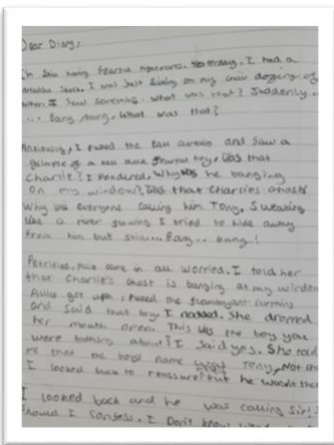 Dear Diary,
I'm having fearful nightmares. Yesterday, I had a
shock. I was just sitting on my chair dozing off
when I saw something. What was that? Suddenly..
... Bang, bang. What was that?
Anxiously, I pulled the curtain and saw a
glimpse of a tall dark fearful boy. Was that
Charlie? I pondered. Why is he banging
on my window? Was that Charlies Ghost?
Why is everyone calling him Tony. Sweating
like a river flowing I tried to hide away
from him but still... Bang.. bang!
Petrified, Alice came in all worried. I told her
that Charlie's Ghost is banging at my window
Alice got up, pulled the curtains
and said that boy. I nodded. She dropped
her mouth open. This is the boy you
were talking about? I said yes. She told
me that the boys name Tony, Not
I looked back to reassure but he wasn't there
I looked back and he was calling Sir!
Should I confess. I Don't know